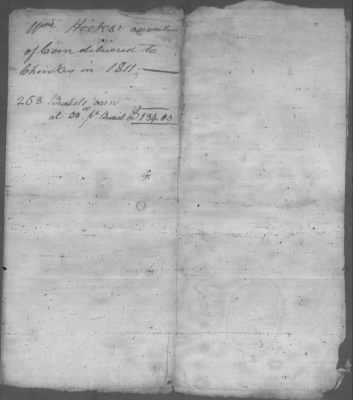 Wm Hicks' account
of Corn delivered to
Cherokees in 1811.
268 Bushels corn
at 50 cts pr Bushel $134.00